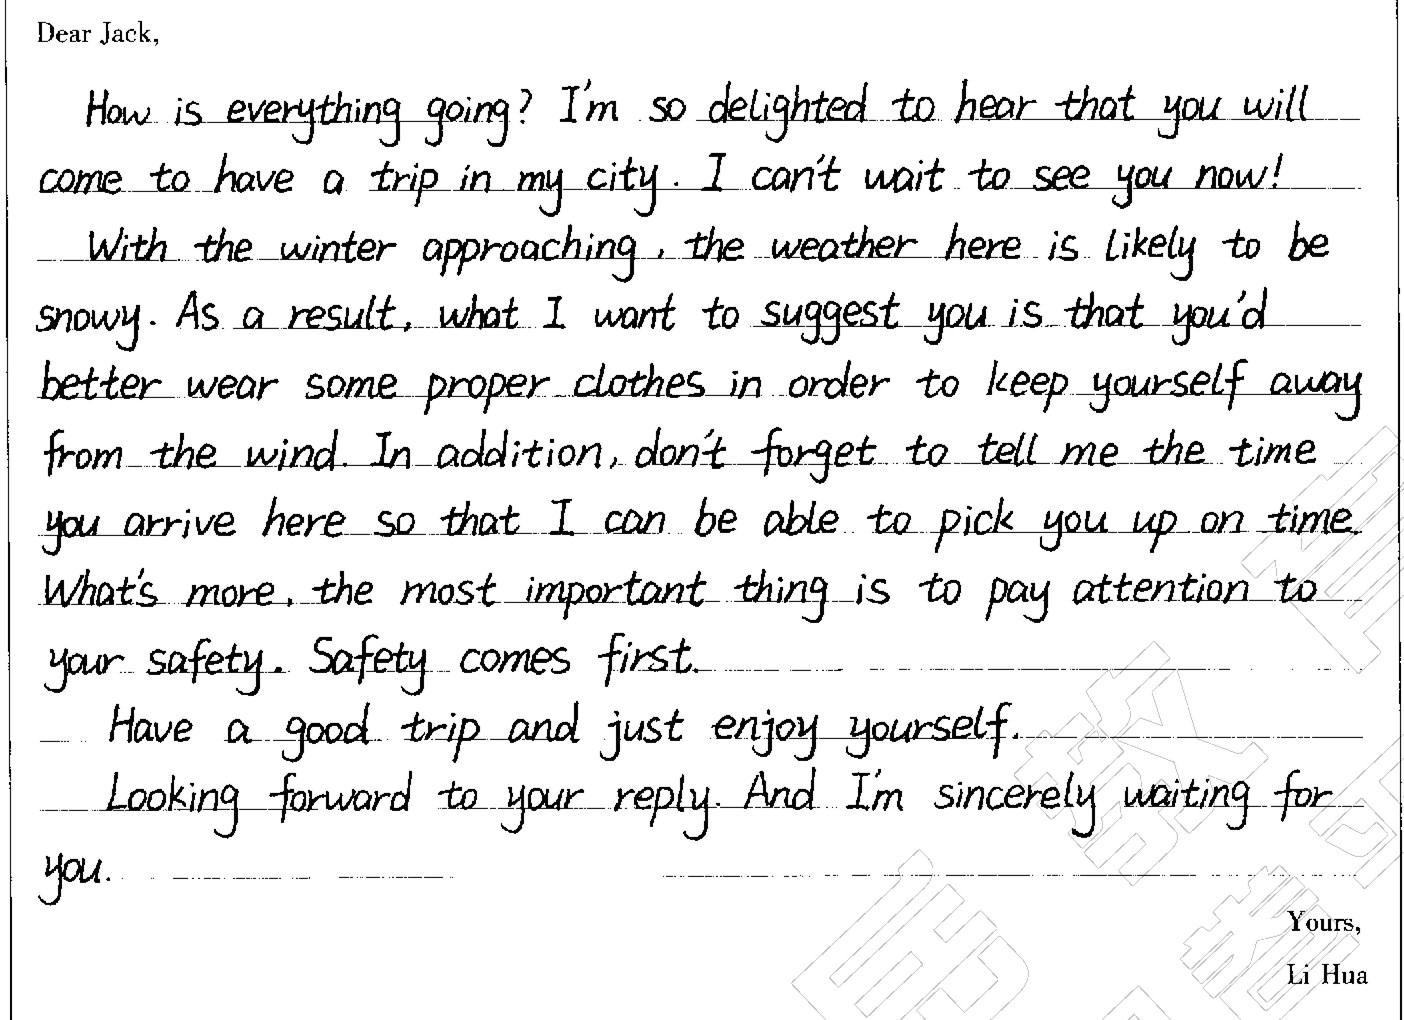 Dear Jack,
How is everything going? I'm so delighted to hear that you will
come to have a trip in my city. I can't wait to see you now!
With the winter approaching, the weather here is likely to be
snowy. As a result, what I want to suggest you is that you'd
better wear some proper clothes in order to keep yourself away
from the wind. In addition, don't forget to tell me the time
you arrive here so that I can be able to pick you up on time.
What's more, the most important thing is to pay attention to
your safety. Safety comes first.
Have a good trip and just enjoy yourself.
Looking forward to your reply. And I'm sincerely waiting for
you.
Yours,
Li Hua